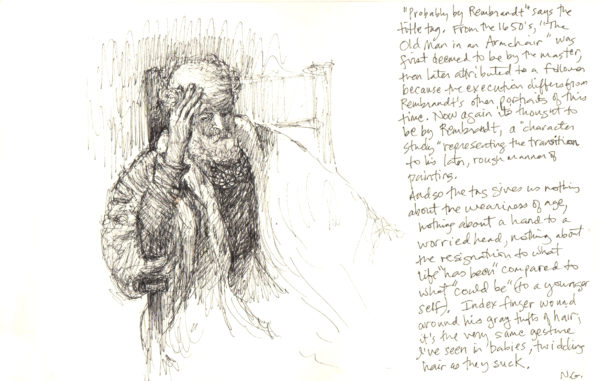 "Probably by Rembrandt" says the
title tag. From the 1650's, "The
Old Man in an Armchair" was
first deemed to be by the master,
then later attributed to a follower
because the execution differs from
Rembrandt's other portraits of this
time. Now again its thought to
be by Rembrandt, a "character
study" representing the transition
to his later, rough manner of
painting.
And so the tag gives us nothing
about the weariness of age,
nothing about a hand to a
worried head, nothing about
the resignation to what
life "has been" compared to
what "could be" (to a younger
self). Index finger wound
around his gray tufts of hair,
it's the very same gesture
I've seen in babies, twiddling
hair as they suck.
N.G.